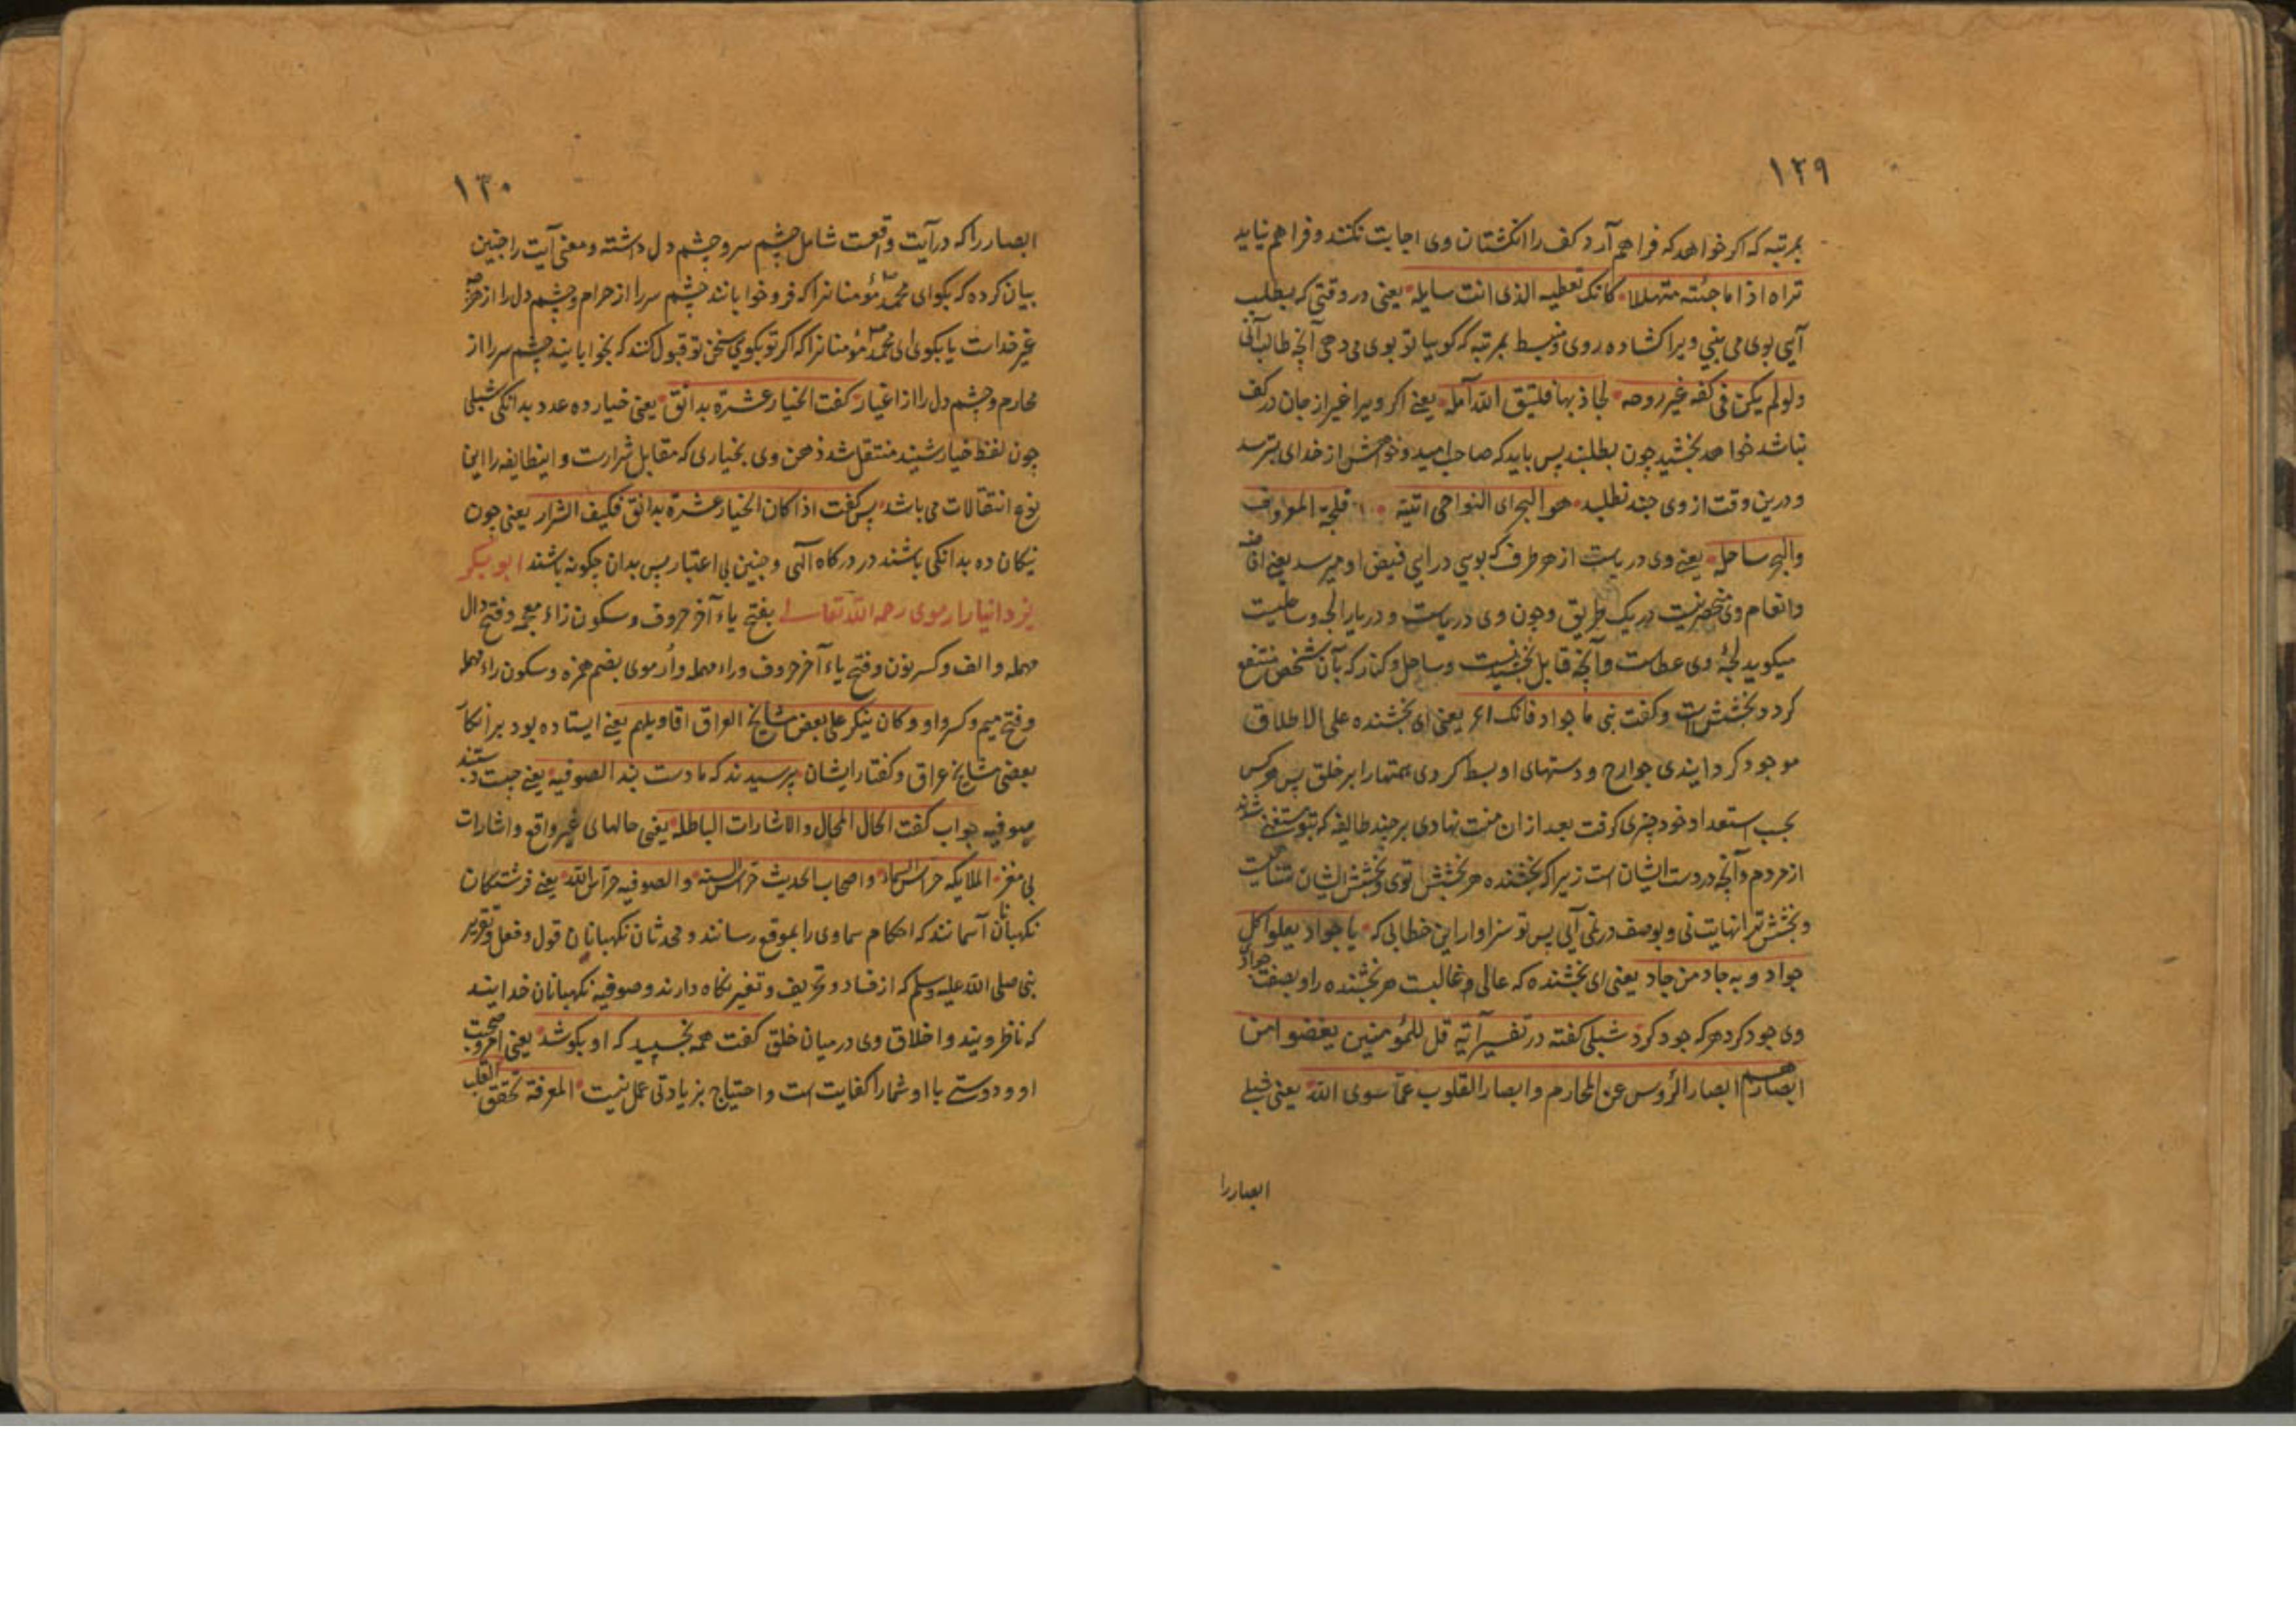 ۱۲۹
بمرتبه که اکر خواهد که فراهم آرد کف را انکشتان وی اجابت نکنند و فراهم نیاید
تراه اذا ما جئته متهللا کانک تعطیه الذی انت سایله یعنی در وقتی که بطلب
آیی بوی می بینی ویرا کشاده روی و منبسط بمرتبه که کوییا تو بوی می دهی آنچه طالب آنی
ولو لم یکن فی کفه غیر روحه لجاذ بها فلیتق الله آمله یعنی اکر ویرا غیر از جان در کف
نباشد خواهد بخشید چون بطلبند پس باید که صاحب امید و خواهش از خدای بترسد
و درین وقت از وی چیزی نطلبد هو البحر ای النواحی اتیته فلجة المعروف
والبحر ساحله یعنی وی دریاست از هر طرف که بوی درایی فیض او میرسد یعنی افاضه
و انعام وی منحصر نیست در یک طریق و چون وی دریاست و دریا را لجه و ساحلیست
میکوید لجهٔ وی عطاست و آنچه قابل بخشیدنست و ساحل و کنار که بآن شخص منتفع
کردد بخشش است و کفت نبی ما جواد فانک الخ یعنی ای بخشنده علی الاطلاق
موجود کردایندی جوارح و دستهای او بسط کردی همتها را بر خلق پس هر کس
بحسب استعداد خود چیزی کرفت بعد ازان منت نهادی بر چند طایفه که بتو مستغنی شدند
از مردم و آنچه در دست ایشان است زیرا که بخشنده هر بخشش توی و بخشش ایشان متناهیست
و بخشش ترا نهایت نی و بوصف در نمی آیی پس تو سزاوار این خطابی که یا جواد یعلو اکل
جواد و به جاد من جاد یعنی ای بخشنده که عالی و غالبست هر بخشنده را و بصفت جواد
وی جود کرد هر که جود کرد شبلی کفته در تفسیر آیه قل للمؤمنین یغضوا من
ابصارهم ابصار الرؤس عن المحارم و ابصار القلوب عما سوی الله یعنی شبلی
ابصار را
۱۳۰
ابصار را که در آیت واقعست شامل چشم سر و چشم دل داشته و معنی آیت را چنین
بیان کرده که بکو ای محمد مؤمنا نرا که فرو خوابانند چشم سر را از حرام و چشم دل را از هرچه
غیر خداست یا بکو ای محمد مؤمنا نرا که اکر تو بکویی سخن تو قبول کنند که بخوابانید چشم سر را از
محارم و چشم دل را از اغیار کفت الخیار عشرة بدانق یعنی خیار ده عدد بدانکی شبلی
چون لفظ خیار شنید منتقل شد ذهن وی بخیاری که مقابل شرارست و اینطایفه را این
نوع انتقالات می باشد پس کفت اذا کان الخیار عشرة بدانق فکیف الشرار یعنی چون
نیکان ده بدانکی باشند در درکاه الهی و چنین بی اعتبار پس بدان چکونه باشند ابو بکر
یزدانیار ارموی رحمه الله تعالی بفتح یاء آخر حروف و سکون زاء معجمه و فتح دال
مهمله و الف و کسر نون و فتح یاء آخر حروف و راء مهمله و ارموی بضم همزه و سکون راء مهمله
و فتح میم و کسر واو و کان ینکر علی بعض مشایخ العراق اقاویلهم یعنی ایستاده بود بر انکار
بعضی مشایخ عراق و کفتار ایشان پرسیدند که ما دست بند الصوفیه یعنی چیست دستبند
صوفیه جواب کفت الحال المحال و الاشارات الباطله یعنی حالهای غیر واقع و اشارات
بی مغز الملایکه حراس السماء و اصحاب الحدیث حراس السنه و الصوفیه حراس الله یعنی فرشتکان
نکهبانان آسمانند که احکام سماوی را بموقع رسانند و محدثان نکهبانان قول و فعل و تقریر
نبی صلی الله علیه وسلم که از فساد و تحریف و تغیر نکاه دارند و صوفیه نکهبانان خدایند
که ناظر ویند و اخلاق وی در میان خلق کفت همه بخسپید که او بکوشد یعنی امروز صحبت
او و دوستی با او شما را کفایت است و احتیاج بزیادتی عمل نیست المعرفة تحقق القلب